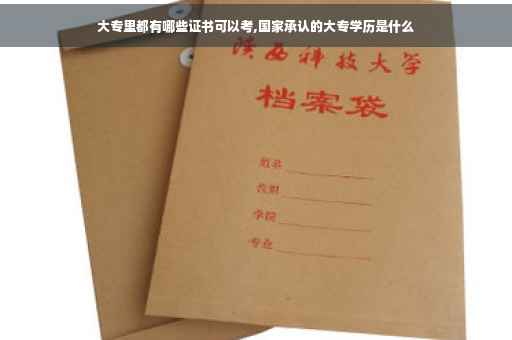 大专里都有哪些证书可以考,国家承认的大专学历是什么
陕西科技大学
档案袋
姓名
学院
专业